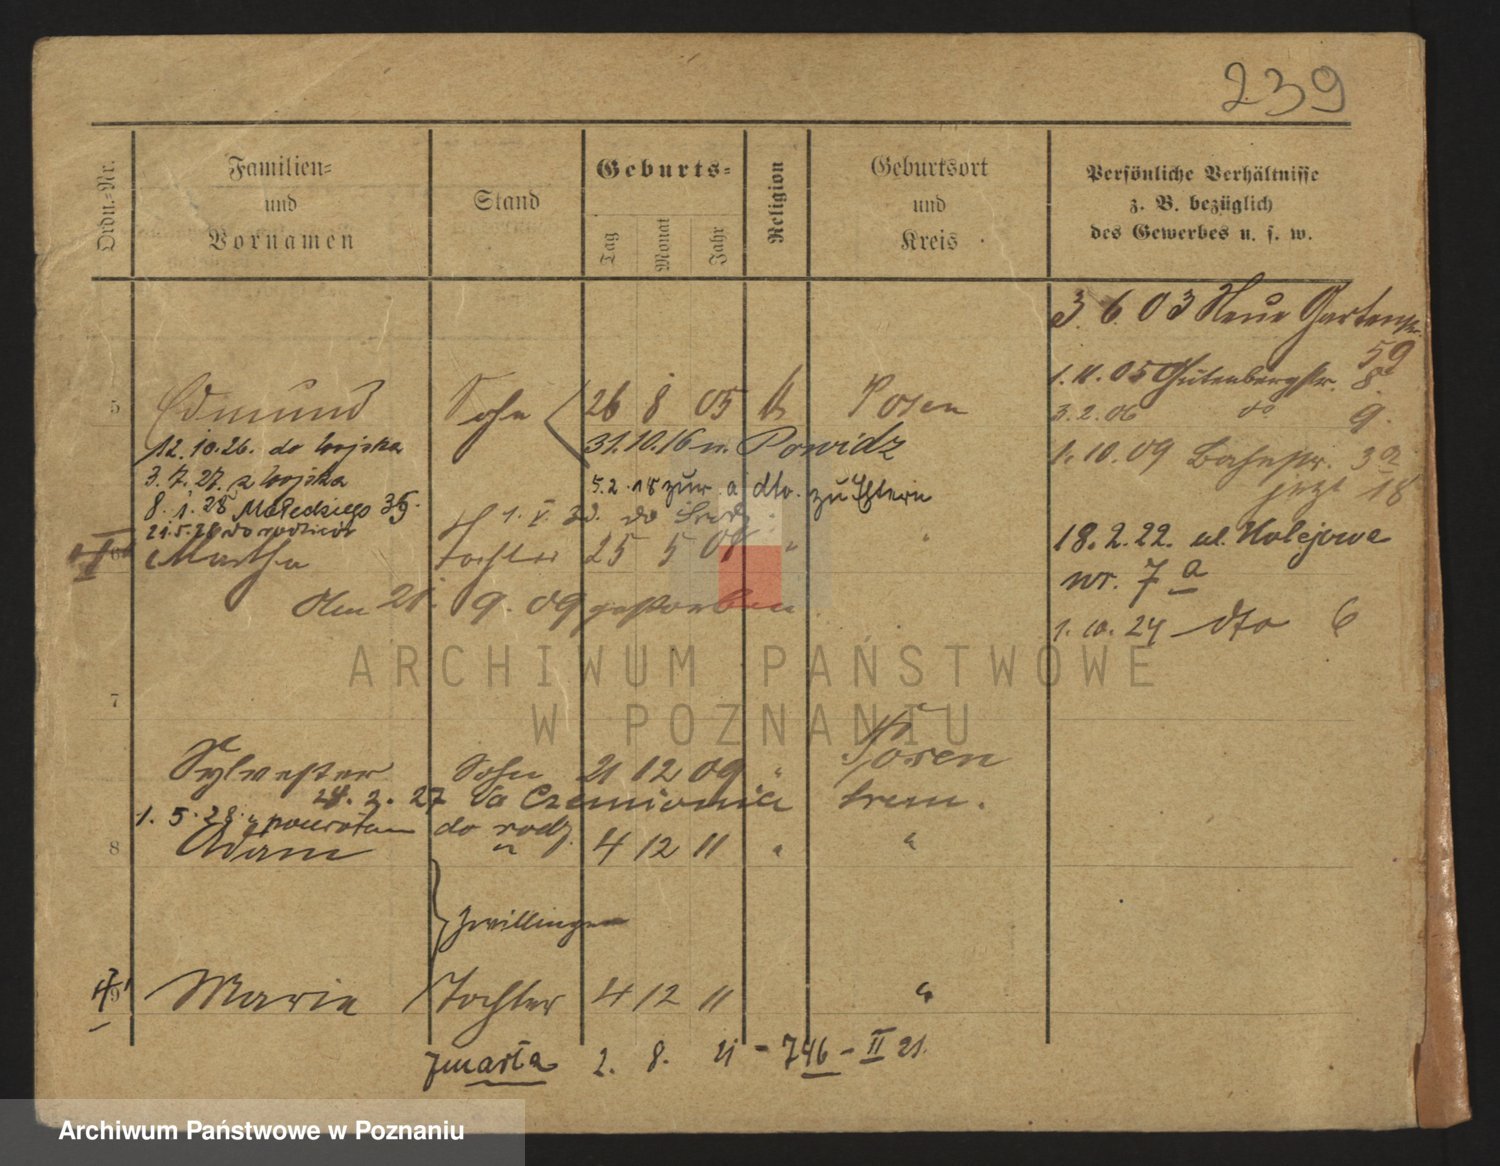 239
Ordn.-Nr.
Familien-
und
Vornamen
Stand
Geburts-
Tag
Monat
Jahr
Religion
Geburtsort
und
Kreis
Persönliche Verhältnisse
z. B. bezüglich
des Gewerbes u. s. w.
3. 6. 03 Neue Gartenstr.
59
1. 11. 05 Gutenbergstr. 8.
3. 2. 06 do 9.
5 Edmund Sohn 26 8 05 k Posen
12. 10. 26. do wojska
31.10.16 n. Powidz
1. 10. 09 Bahnstr. 3a
jezt 18
3. 7. 27. z wojska
5. 2. 18 zur. a dto. zu Eltern
8. 1. 28 Małeckiego 35.
1. V. 32. do
21. 5. 28 do rodziców
6 Martha Tochter 25 5 09 " "
18. 2. 22. ul. Kolejowa
nr. 7 a
Am 21. 9. 09 gestorben.
1. 10. 24 dto 6
ARCHIWUM PAŃSTWOWE
W POZNANIU
7
Sylvester Sohn 21 12 09 " Posen
24. 2. 27
1. 5. 28 z powrotem do rodz.
8 Adam " 4 12 11 " "
Zwillinge
9 Marie Tochter 4 12 11 "
zmarła 2. 8. 21 - 746 - II 21.
Archiwum Państwowe w Poznaniu